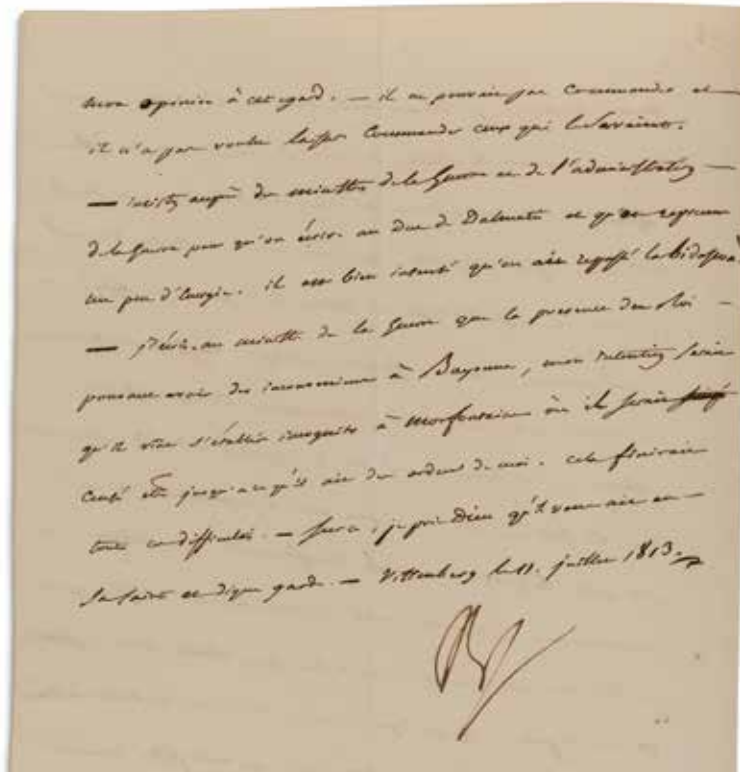 mon opinion à cet égard. — il ne pouvait pas Commander et
il n'a pas voulu laisser Commander ceux qui le Savaient.
— auprès du ministre de la Guerre et de l'administration —
de la Guerre pour qu'on écrive au Duc de Dalmatie et qu'on reprenne
un peu d'Energie. il est bien qu'on ait repassé la bidassoa.
— J'écris au ministre de la Guerre que la presence du Roi —
pouvant avoir des inconveniens à Bayonne, mon intention serait
qu'il vint s'établir incognito à Morfontaine où il serait
Censé être jusqu'a ce qu'il ait des ordres de moi. cela finirait
toutes ces difficultés. — Sur ce, je prie Dieu qu'il vous ait en —
Sa Sainte et digne garde. — Vittemberg le 11. juillet 1813.